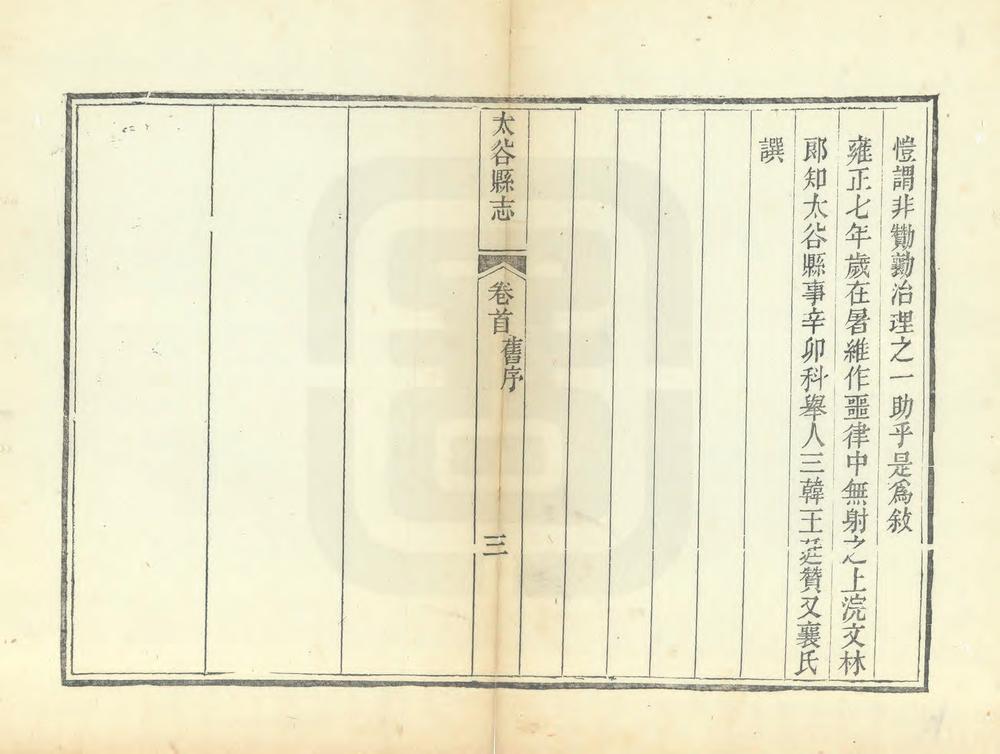 愷謂非勷勷治理之一助乎是爲敘
雍正七年歲在屠維作噩律中無射之上浣文林
郎知太谷縣事辛卯科舉人三韓王廷贊又襄氏
譔
太谷縣志
卷首
舊序
三